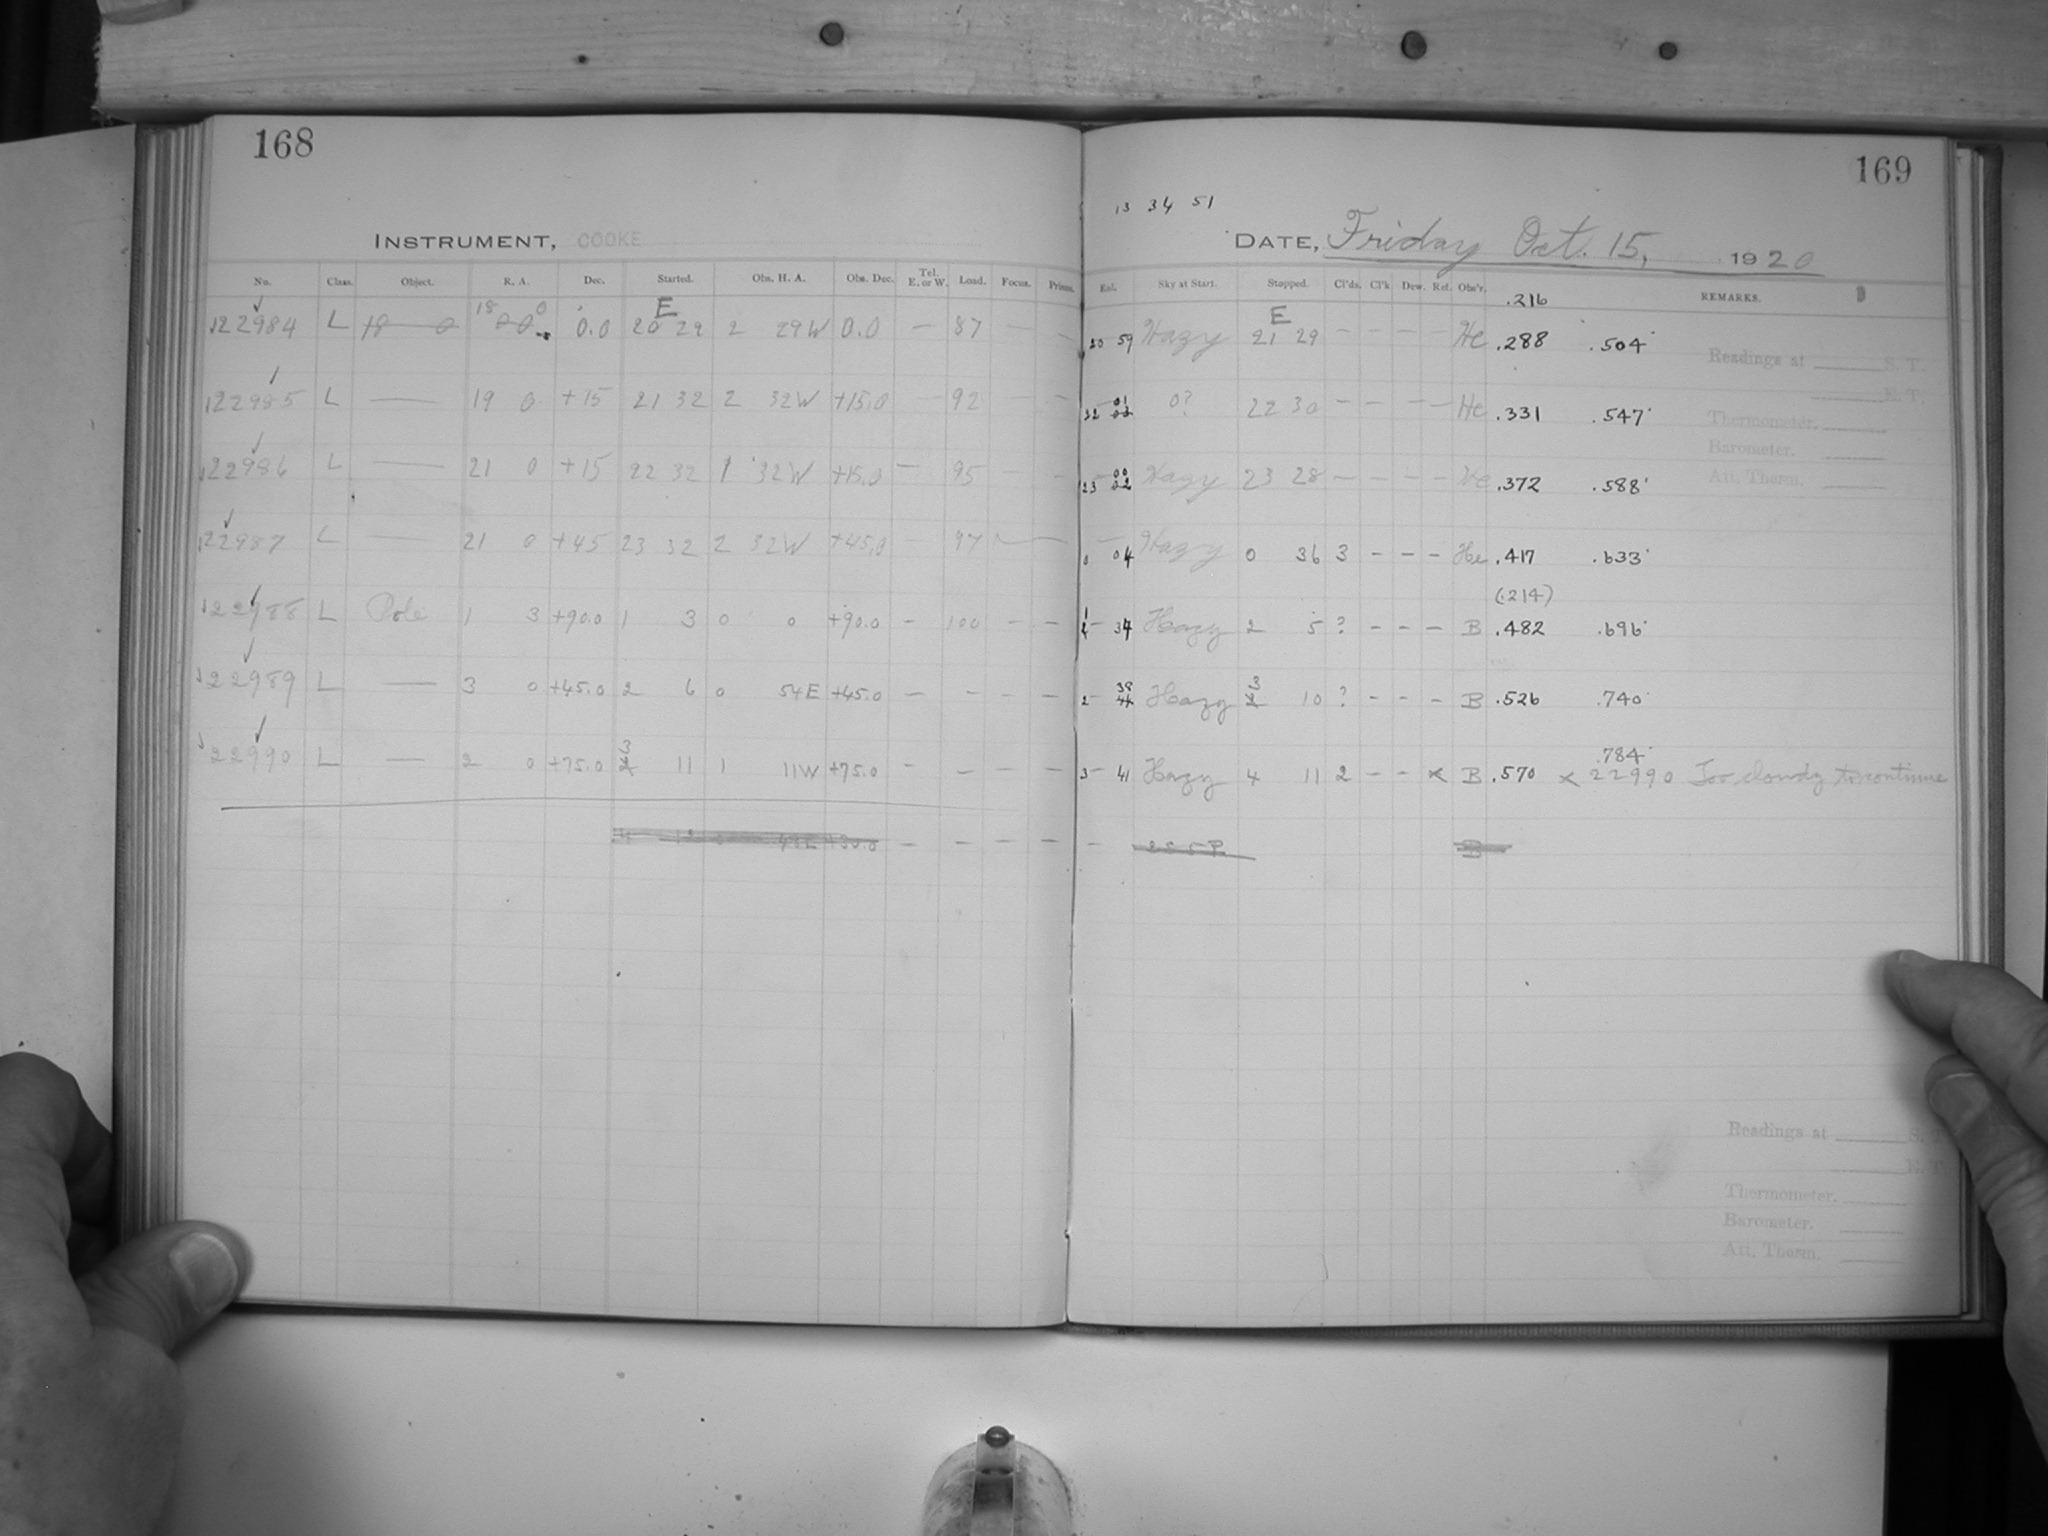 168
169
13 34 51
INSTRUMENT, COOKE
DATE, Friday Oct. 15, 1920
No. Class. Object. R. A. Dec. Started. Obs. H. A. Obs. Dec. Tel. E. or W. Load. Focus. Prisms.
Exl. Sky at Start. Stopped. Cl'ds. Cl'k Dew. Ref. Obs'r. .216 REMARKS.
18 0 E
E
122984 L 18 0 0.0 20 29 2 29W 0.0 — 87 — —
20 59 Hazy 21 29 — — — — He .288 .504
Readings at S. T.
122985 L — 19 0 +15 21 32 2 32W +15.0 92 — —
01
0? 22 30 — — — — He .331 .547
E. T.
Thermometer.
Barometer.
122986 L — 21 0 +15 22 32 1 32W +15.0 — 95 — —
00
23 02 Hazy 23 28 — — — — He .372 .588
Att. Therm.
122987 L — 21 0 +45 23 32 2 32W +45.0 — 97
0 04 Hazy 0 36 3 - - - He .417 .633
(.214)
122988 L Pole 1 3 +90.0 1 3 0 0 +90.0 - 100 - -
1 34 Hazy 2 5 ? - - - B .482 .696
122989 L — 3 0 +45.0 2 6 0 54E +45.0 — - — —
38
3
2 Hazy 10 ? - - - B .526 .740
3
.784
122990 L — 2 0 +75.0 11 1 11W +75.0 - - — —
3 41 Hazy 4 11 2 - - x B .570 x 22990 Too cloudy to continue
B
Readings at S. T.
E. T.
Thermometer.
Barometer.
Att. Therm.